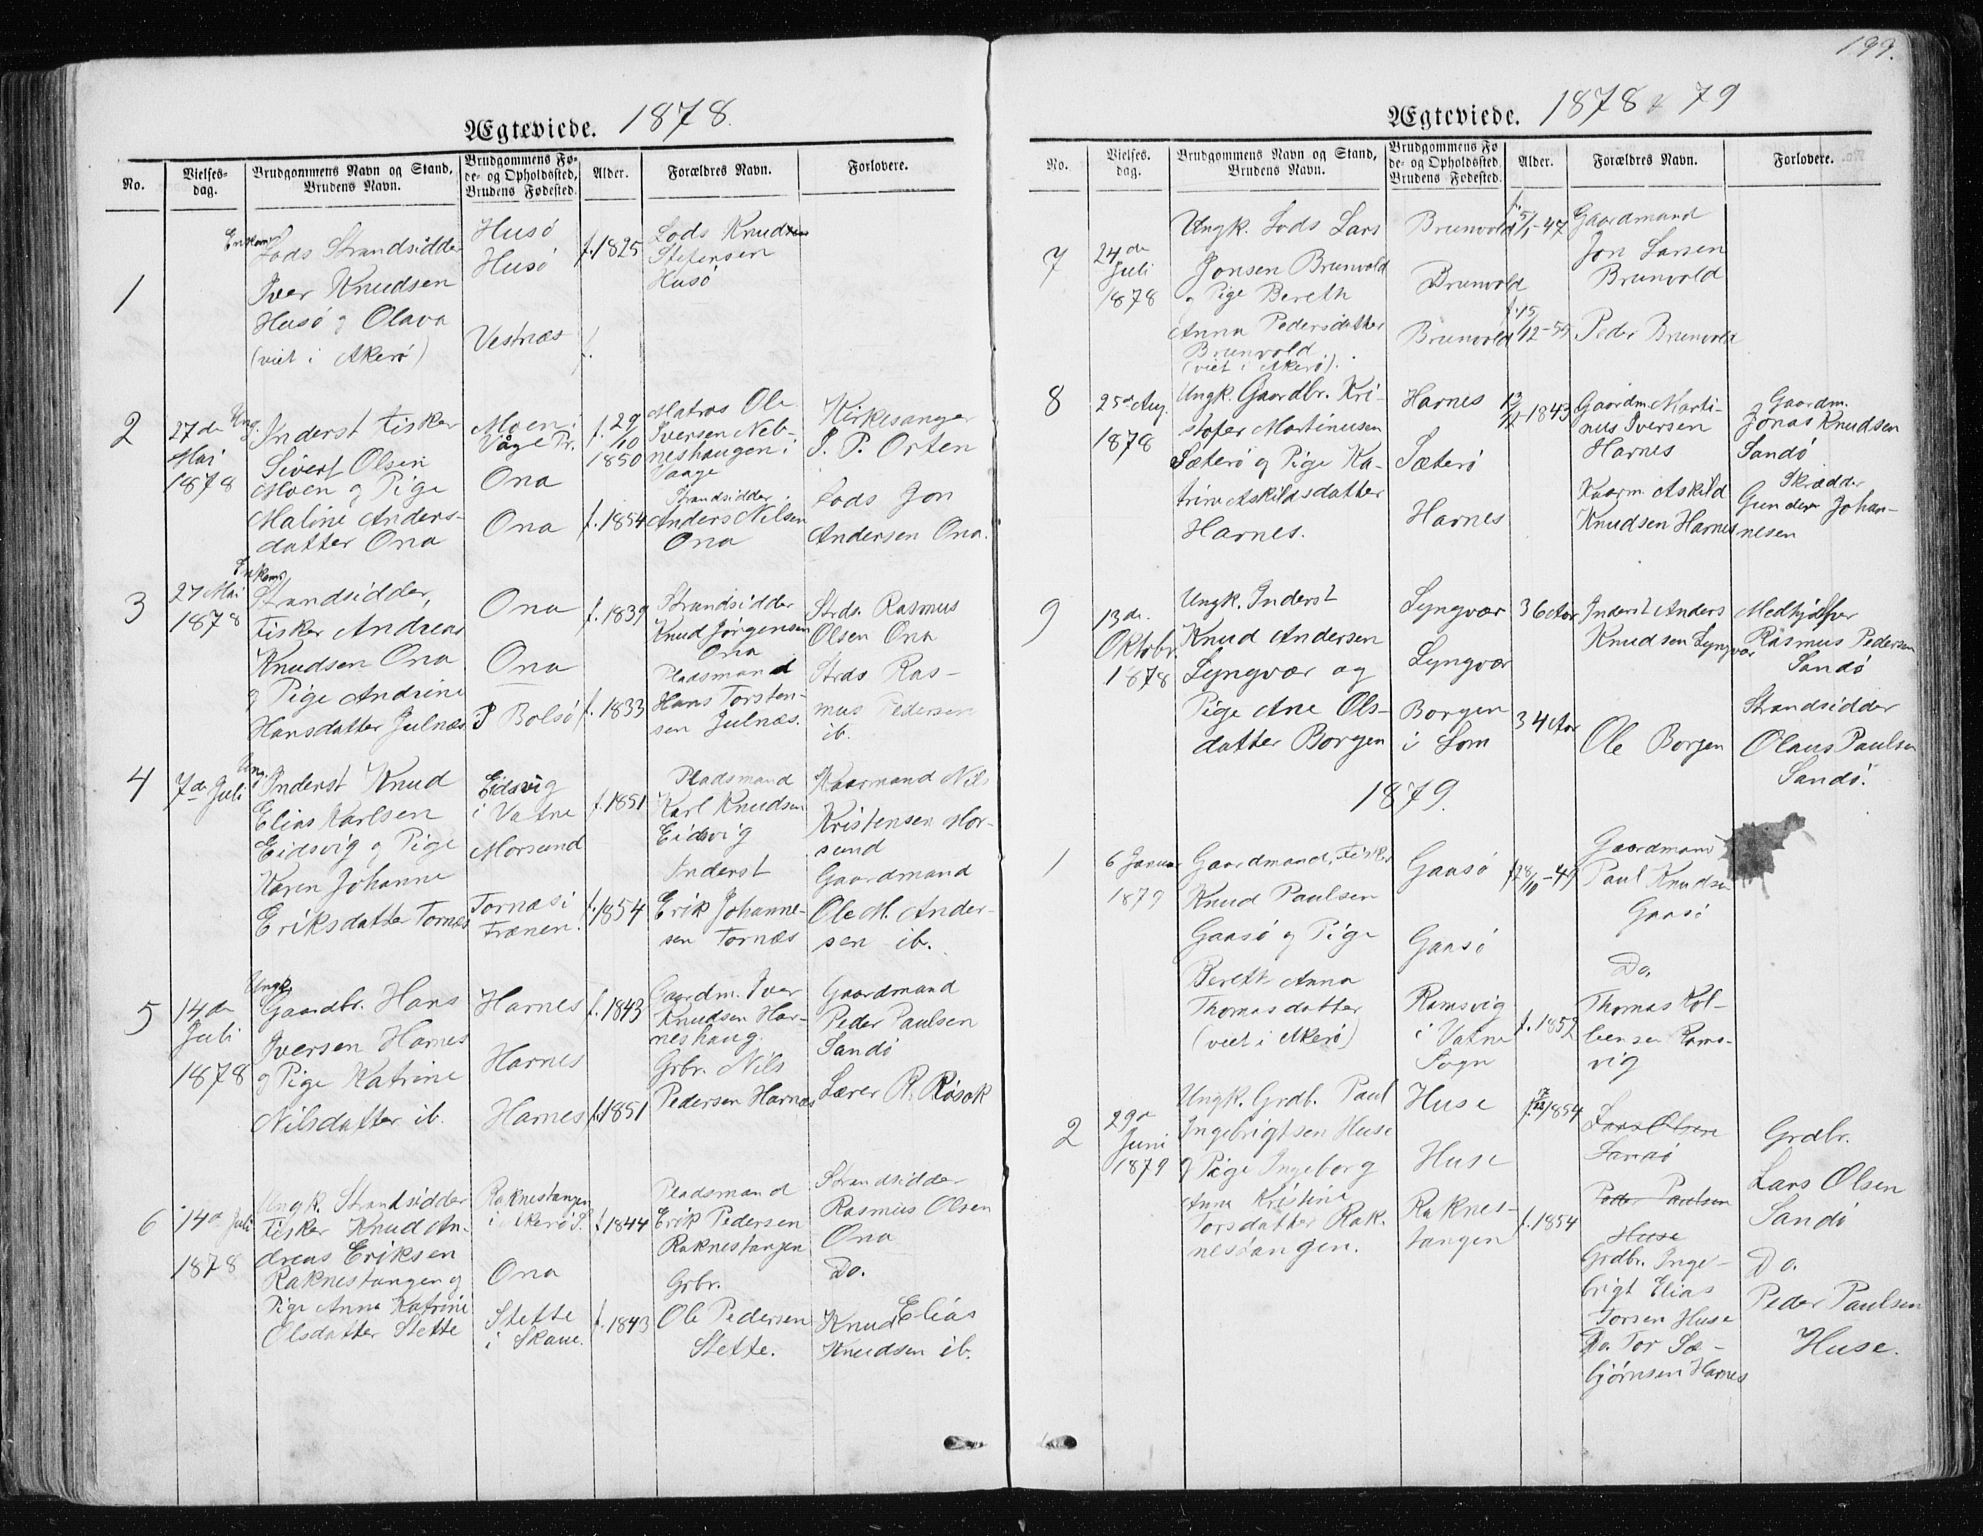 Ægteviede. 1878.
No.
Vielses-
dag.
Brudgommens Navn og Stand,
Brudens Navn.
Brudgommens Fø-
de- og Opholdssted,
Brudens Fødested.
Alder.
Forældres Navn.
Forlovere.
1
Enkem.
Lods Strandsidder
Iver Knudsen
Husö og Olava
(viet i Akerö)
Husö
Husö
Vestnæs
f. 1825
f.
Lods Knud
Stefensen
Husö
2
27de
Mai
1878
Ung.
Inderst Fisker
Sivert Olsen
Moen og Pige
Maline Anders-
datter Ona
Moen i
Våge Pr.
Ona
Ona
f. 29/10
1850
f. 1854
Matros Ole
Iversen Neb-
neshaugen i
Vaage
Strandsidder
Anders Nilsen
Ona
Kirkesanger
J. P. Orten
Lods Jon
Andersen Ona.
3
27 Mai
1878
Enkem.
Strandsidder,
Fisker Andreas
Knudsen Ona
og Pige Andrine
Hansdatter Julnæs
Ona
Ona
P Bolsö
f. 1839
f. 1833
Strandsidder
Knud Jörgensen
Ona
Pladsmand
Hans Torsten-
sen Julnæs.
Strds. Rasmus
Olsen Ona
Strds Ras-
mus Pedersen
ib.
4
7de Juli
Ung.
Inderst Knud
Elias Karlsen
Eidsvig og Pige
Karen Johanne
Eriksdatter Tornæs
Eidsvig
i Vatne
Morsund
Tornæs i
Frænen.
f. 1851
f. 1854
Pladsmand
Karl Knudsen
Eidsvig
Inderst
Erik Johanne-
sen Tornæs
Kaarmand Nils
Kristensen Mor-
sund
Gaardmand
Ole M. Ander-
sen ib.
5
14de
Juli
1878
Ungk.
Gaardbr. Hans
Iversen Harnes
og Pige Katrine
Nilsdatter ib.
Harnes
Harnes
Harnes
f. 1843
f. 1851
Gaardm. Iver
Knudsen Har-
neshaug.
Grbr. Nils
Pedersen Harnæs
Gaardmand
Peder Paulsen
Sandö
Lærer R. Rösok
6
14de Juli
1878
Ungk. Strandsidder
Fisker Knud An-
dreas Eriksen
Raknestangen og
Pige Anne Katrine
Olsdatter Stette
Raknestangen
i Akerö S.
Ona
Stette
i Skaue.
f. 1844
f. 1843
Pladsmand
Erik Pedersen
Raknestangen
Grbr.
Ole Pedersen
Stette.
Strandsidder
Rasmus Olsen
Ona
Do.
Knud Elias
Knudsen ib.
199.
Ægteviede. 1878 & 79
No.
Vielses-
dag.
Brudgommens Navn og Stand,
Brudens Navn.
Brudgommens Fø-
de- og Opholdssted,
Brudens Fødested.
Alder.
Forældres Navn.
Forlovere.
7
24de
Juli
1878
Ungk. Lods Lars
Jonsen Brunvold
og Pige Bereth
Anna Pedersdatter
Brunvold
(viet i Akerö).
Brunvold
Brunvold
Brunvold
f. 5/1-47
f. 15/12-55
Gaardmand
Jon Larsen
Brunvold
Peder Brunvold
8
25de Aug.
1878
Ungk. Gaardbr. Kri-
stofer Martinusen
Sæterö og Pige Ka-
trine Askildsdatter
Harnes.
Harnes
Sæterö
Harnes
1843
Gaardm. Marti-
nus Iversen
Harnes
Kaarm Askild
Knudsen Harnes
Gaardm.
Jonas Knudsen
Sandö
Skrædder
Gunder Johan-
nesen
9
13de
Oktobr
1878
Ungk. Inderst
Knud Andersen
Lyngvær og
Pige Ane Ols-
datter Borgen
Lyngvær
Lyngvær
Borgen
i Lom
36 Aar
34 Aar
Inderst Anders
Knudsen Lyngvær
Ole Borgen
Medhjælper
Rasmus Pedersen
Sandö
Strandsidder
Olaus Paulsen
Sandö.
1879.
1
6 Januar
1879
Gaardmand, Fisker
Knud Paulsen
Gaasö og Pige
Bereth Anna
Thomasdatter
(viet i Akerö)
Gaasö
Gaasö
Ramsvig
i Vatne
Sogn
f. 28/10-49
f. 1852
Gaardmand
Paul Knudsen
Gaasö
Do.
Thomas Kol-
bensen Rams-
vig
2
29de
Juni
1879
Ungk. Grdb. Paul
Ingebrigtsen Huse
og Pige Ingeborg
Anna Kristine
Torsdatter Rak-
nestangen.
Huse
Huse
Raknes-
tangen
1854
f. 1854
Lars Olsen
Sandö
Peder Paulsen
Huse
Grdbr. Inge-
brigt Elias
Torsen Huse
Do. Tor Sæ-
björnsen Harnes
Grdbr.
Lars Olsen
Sandö
Do.
Peder Paulsen
Huse.